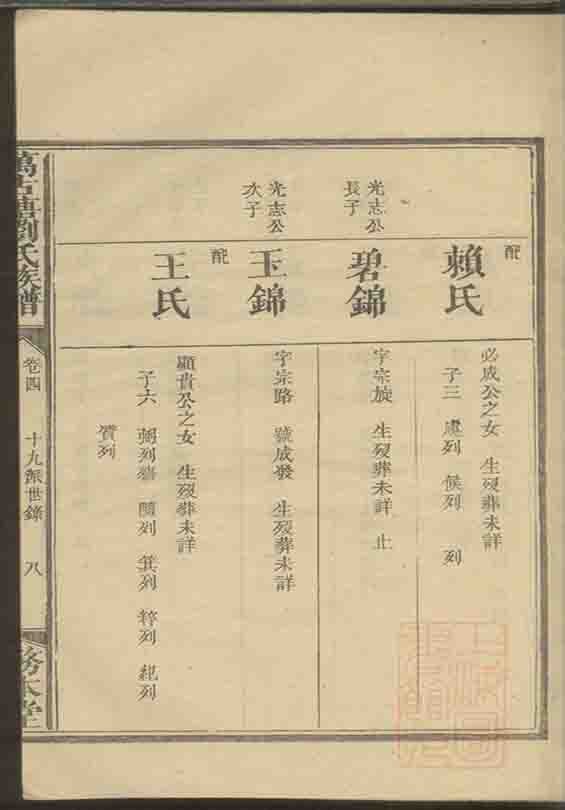 配
賴氏
必成公之女 生歿葬未詳
子三 處列 候列 列
光志公
長子
碧錦
字宗旋 生歿葬未詳 止
光志公
次子
玉錦
字宗路 號成發 生歿葬未詳
配
王氏
顯貴公之女 生歿葬未詳
子六 列 列 箕列 粹列 紀列
列
萬古塘劉氏族譜
卷四 十九派世錄 八
務本堂